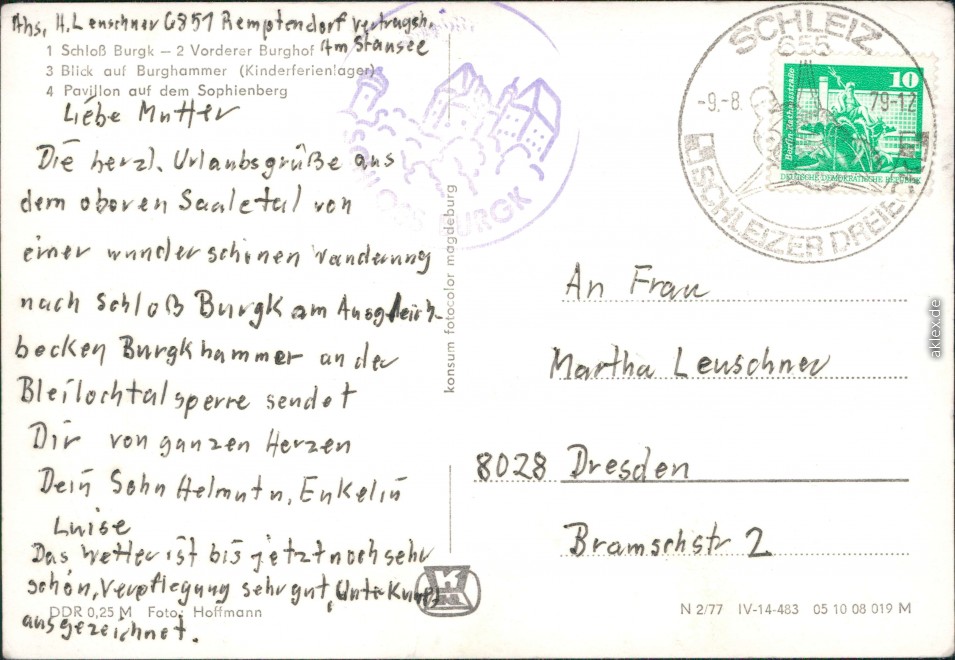 Abs. H. Leuschner 6851 Remptendorf Vertragsh.
Am Stausee
1 Schloß Burgk – 2 Vorderer Burghof
3 Blick auf Burghammer (Kinderferienlager)
4 Pavillon auf dem Sophienberg
Liebe Mutter
Die herzl. Urlaubsgrüße aus
dem oberen Saaletal von
einer wunderschönen Wanderung
nach Schloß Burgk am Ausgleich-
becken Burgkhammer an der
Bleilochtalsperre sendet
Dir von ganzen Herzen
Dein Sohn Helmut u. Enkelin
Luise
Das Wetter ist bis jetzt noch sehr
schön, Verpflegung sehr gut, Unterkunft
ausgezeichnet.
DDR 0,25 M Foto: Hoffmann
konsum fotocolor magdeburg
SCHLOSS BURGK
SCHLEIZ
655
-9.-8. 79-12
SCHLEIZER DREIECK
10
Berlin-Rathausstraße
DEUTSCHE DEMOKRATISCHE REPUBLIK
An Frau
Martha Leuschner
8028 Dresden
Bramschstr 2
K
N 2/77 IV-14-483 05 10 08 019 M
aklex.de